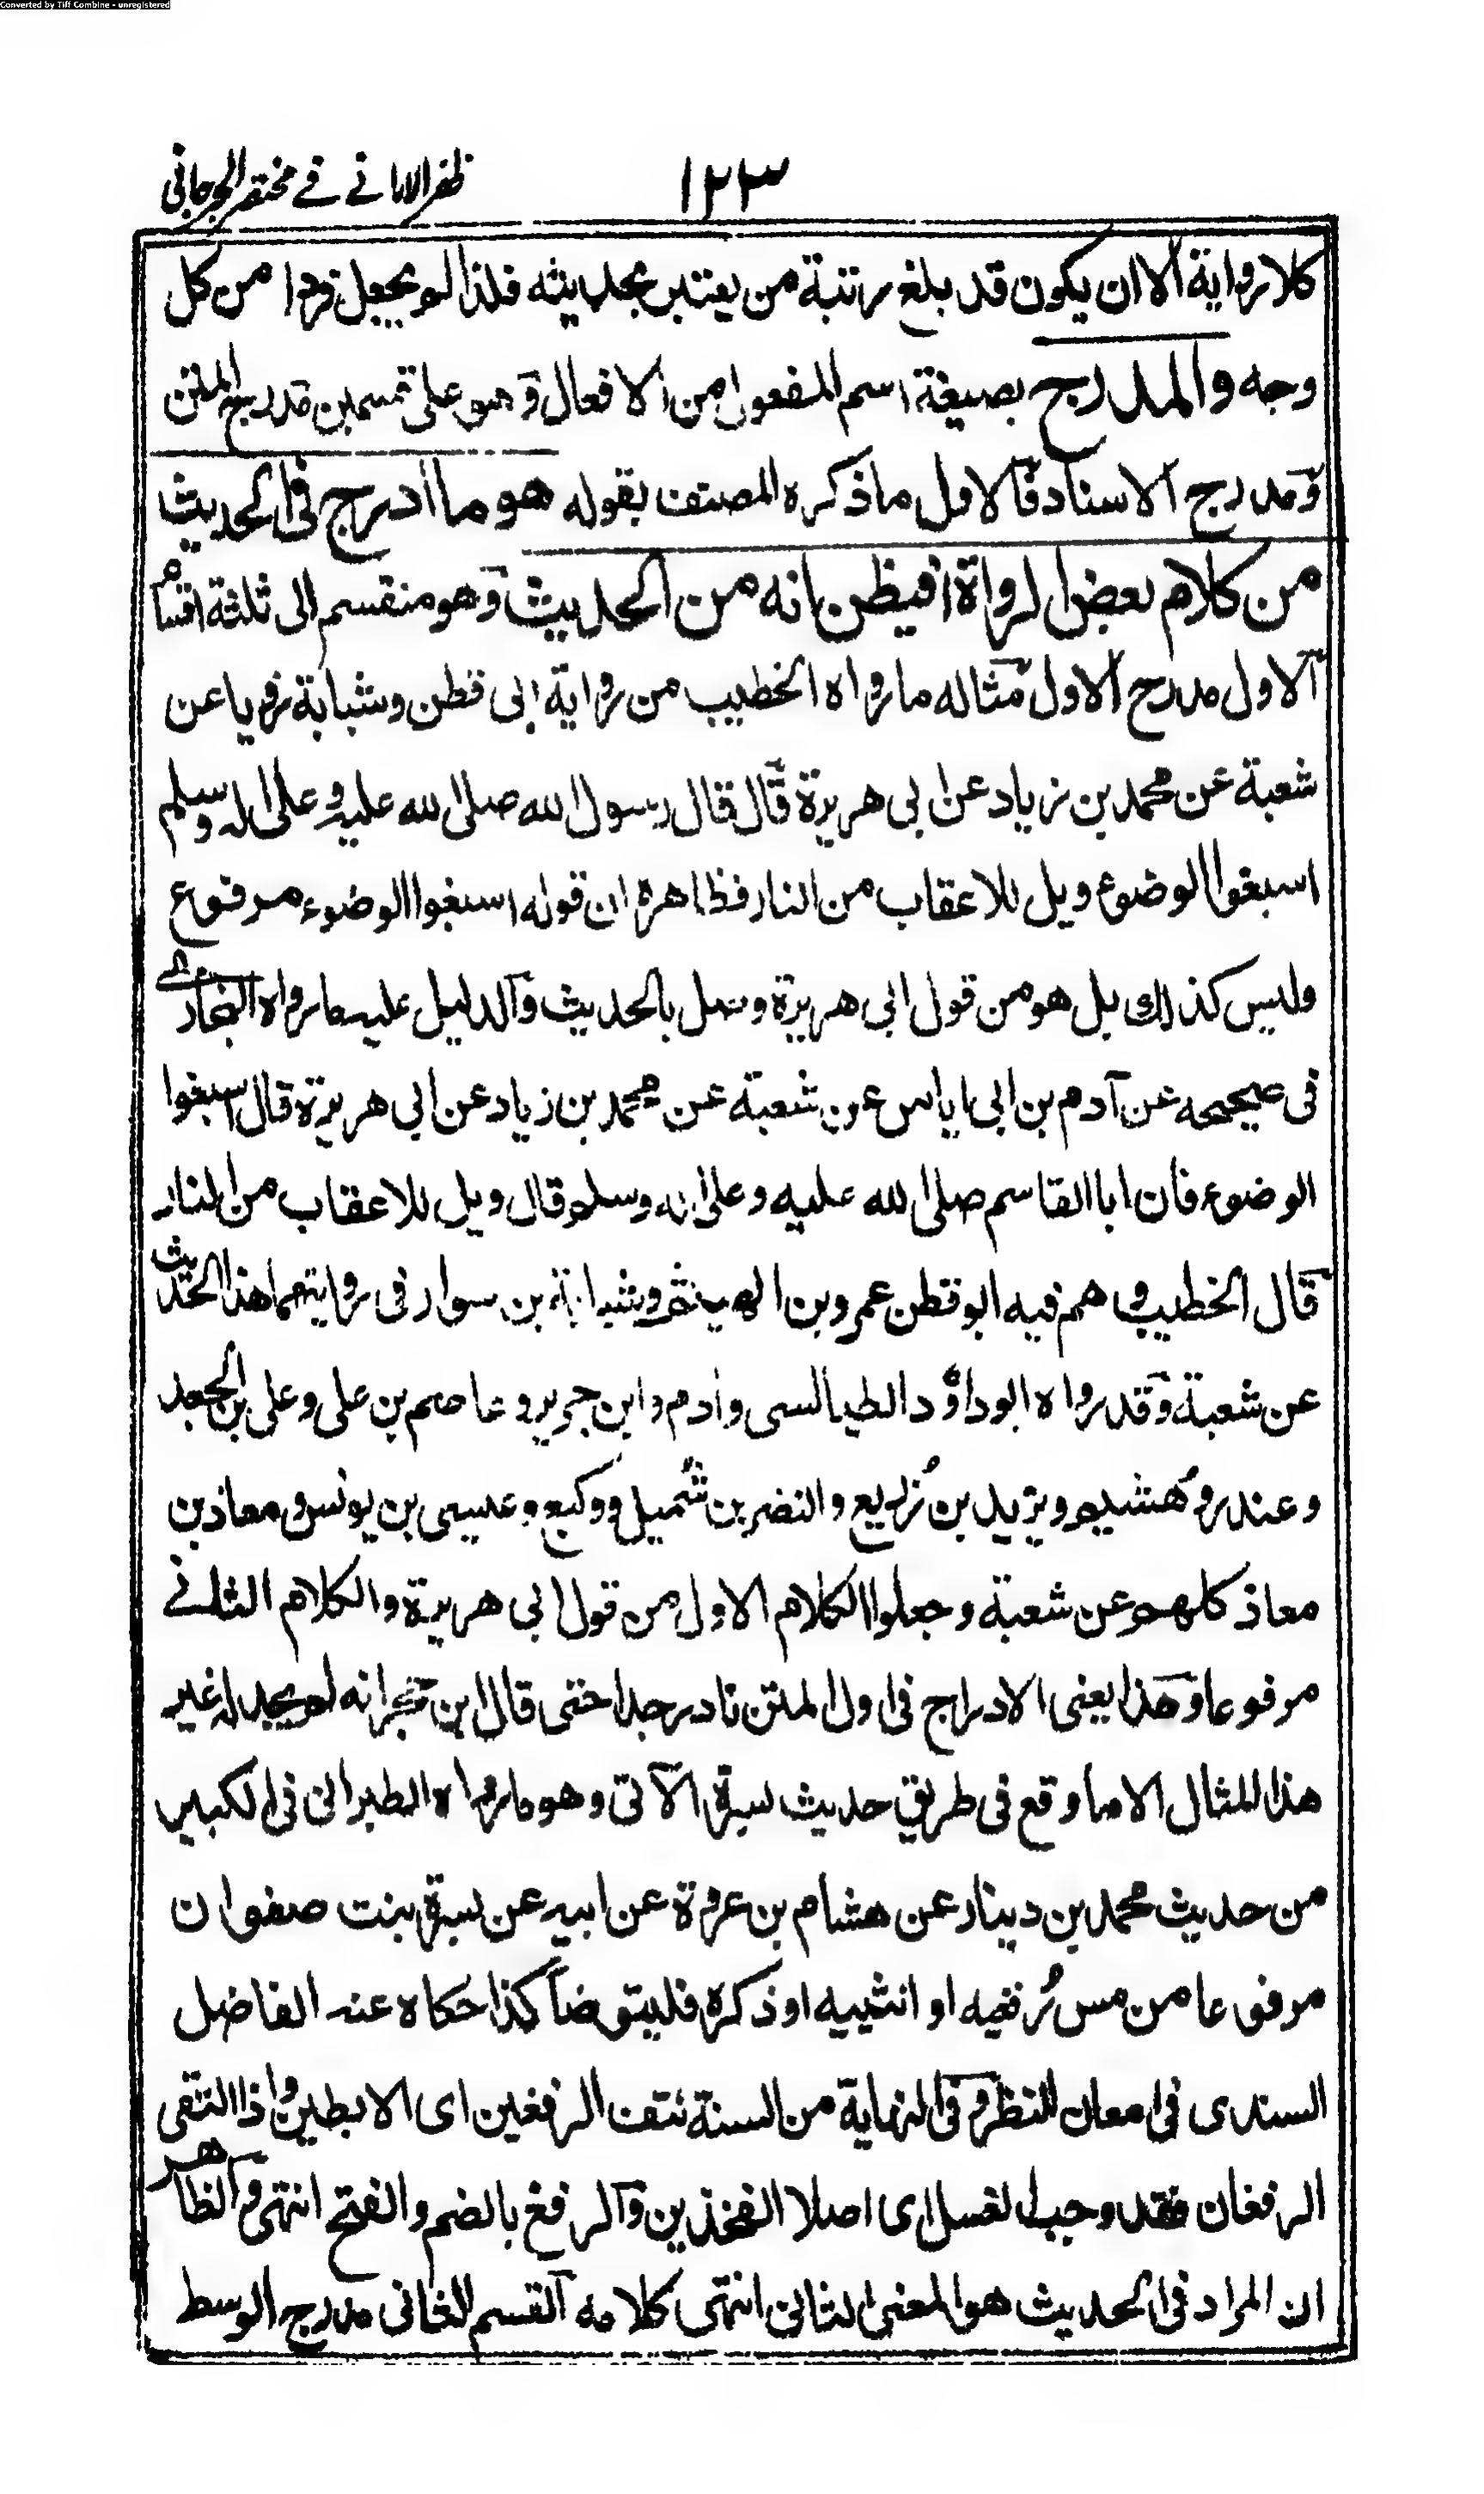 Converted by Tiff Combine - unregistered
١٢٣
ظفر الامانے فے مختصر الجرجانی
كلا رواية الا ان يكون قد بلغ مرتبة من يعتبر بحديثه فلذا لم يجعل فردا من كل
وجه والمدرج بصيغة اسم المفعول من الافعال وهو على قسمين مدرج المتن
ومدرج الاسناد فالاول ما ذكره المصنف بقوله هو ما ادرج فى الحديث
من كلام بعض الرواة فيظن انه من الحديث وهو منقسم الى ثلثة اقسام
الاول مدرج الاول مثاله ما رواه الخطيب من رواية ابى قطن وشبابة فرويا عن
شعبة عن محمد بن زياد عن ابى هريرة قال قال رسول الله صلى الله عليه وعلى اله وسلم
اسبغوا الوضوء ويل للاعقاب من النار فظاهره ان قوله اسبغوا الوضوء مرفوع
وليس كذلك بل هو من قول ابى هريرة وصل بالحديث والدليل عليه ما رواه البخارے
فى صحيحه عن آدم بن ابى اياس عن شعبة عن محمد بن زياد عن ابى هريرة قال اسبغوا
الوضوء فان ابا القاسم صلى الله عليه وعلى اله وسلم قال ويل للاعقاب من النار
قال الخطيب وهم فيه ابو قطن عمرو بن الهيثم وشبابة بن سوار فى روايتهما هذا الحديث
عن شعبة وقد رواه ابو داؤد الطيالسى وادم وابن جرير وعاصم بن على وعلى بن الجعد
وعندر وهشيم ويزيد بن زُريع والنضر بن شُميل ووكيع وعيسى بن يونس ومعاذ بن
معاذ كلهم عن شعبة وجعلوا الكلام الاول من قول ابى هريرة والكلام الثانے
مرفوعا وهذا يعنى الادراج فى اول المتن نادر جدا حتى قال ابن حجر انه لم يجد له غير
هذا المثال الا ما وقع فى طريق حديث بسرة الآتى وهو ما رواه الطبرانى فى الكبير
من حديث محمد بن دينار عن هشام بن عروة عن ابيه عن بسرة بنت صفوان
مرفوعا من مس رُفغيه او انثييه او ذكره فليتوضأ كذا حكاه عنه الفاضل
السندى فى امعان النظر وفى النهاية من السنة نتف الرفغين اى الابطين واذا التقى
الرفغان فقد وجب الغسل اى اصلا الفخذين والرفغ بالضم والفتح انتهى والظاهر
ان المراد فى الحديث هو المعنى الثانى انتهى كلامه القسم الثانى مدرج الوسط